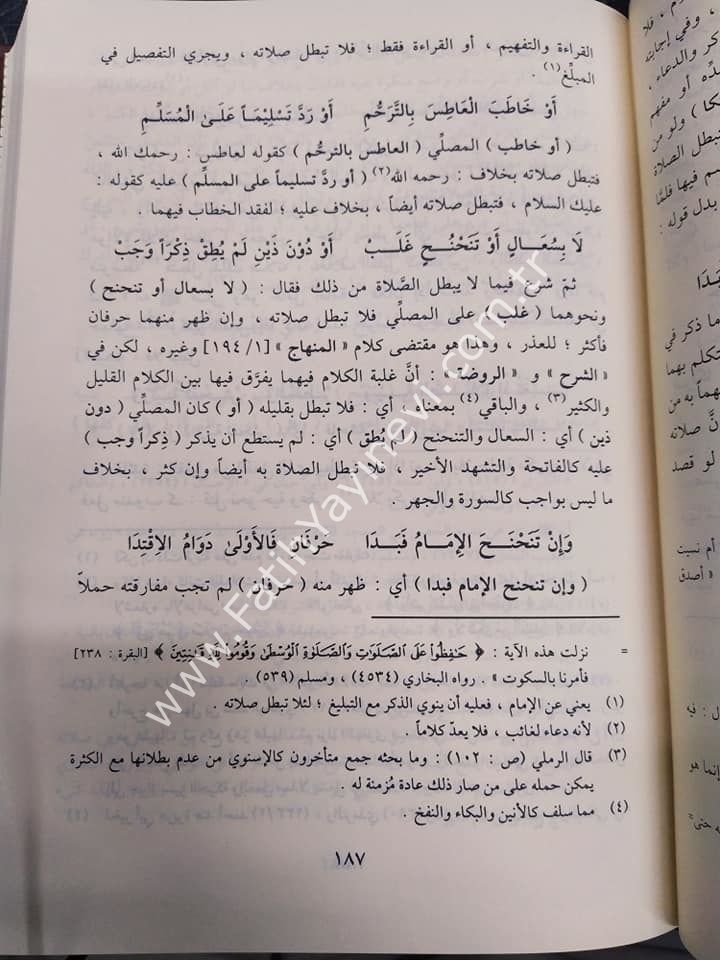 القراءة والتفهيم ، أو القراءة فقط ؛ فلا تبطل صلاته ، ويجري التفصيل في
المبلِّغ(١) .
أَوْ خَاطَبَ العَاطِسَ بِالتَّرَحُّمِ أَوْ رَدَّ تَسْلِيْمَاً عَلَىٰ الْمُسَلِّمِ
( أو خاطب ) المصلِّي ( العاطس بالترحُّم ) كقوله لعاطسٍ : رحمك الله ،
فتبطل صلاته بخلاف : رحمه الله(٢) ( أو ردَّ تسليماً على المسلِّم ) عليه كقوله :
عليك السلام ، فتبطل صلاته أيضاً ، بخلاف عليه ؛ لفقد الخطاب فيهما .
لَا بِسُعَالٍ أَوْ تَنَحْنُحٍ غَلَبْ أَوْ دُوْنَ ذَيْنِ لَمْ يُطِقْ ذِكْرَاً وَجَبْ
ثمّ شرع فيما لا يبطل الصَّلاة من ذلك فقال : ( لا بسعال أو تنحنح )
ونحوهما ( غلب ) على المصلي فلا تبطل صلاته ، وإن ظهر منهما حرفان
فأكثر ؛ للعذر ، وهذا هو مقتضى كلام « المنهاج » [١/ ١٩٤] وغيره ، لكن في
« الشرح » و « الروضة » : أنَّ غلبة الكلام فيهما يفرَّق فيها بين الكلام القليل
والكثير(٣) ، والباقي(٤) بمعناه ، أي : فلا تبطل بقليله ( أو ) كان المصلِّي ( دون
ذين ) أي : السعال والتنحنح ( لم يُطق ) أي : لم يستطع أن يذكر ( ذِكراً وجب )
عليه كالفاتحة والتشهد الأخير ، فلا تبطل الصلاة به أيضاً وإن كثر ، بخلاف
ما ليس بواجب كالسورة والجهر .
وَإِنْ تَنَحْنَحَ الإِمَامُ فَبَدَا حَرْفَانِ فَالأَوْلَىٰ دَوَامُ الِاقْتِدَا
( وإن تنحنح الإمام فبدا ) أي : ظهر منه ( حرفان ) لم تجب مفارقته حملاً
= نزلت هذه الآية : ﴿ حَافِظُوا عَلَى الصَّلَوَاتِ وَالصَّلَاةِ الْوُسْطَىٰ وَقُومُوا لِلَّهِ قَانِتِينَ ﴾ [البقرة : ٢٣٨]
فأمرنا بالسكوت » . رواه البخاري (٤٥٣٤) ، ومسلم (٥٣٩) .
(١) يعني عن الإمام ، فعليه أن ينوي الذكر مع التبليغ ؛ لئلا تبطل صلاته .
(٢) لأنه دعاء لغائب ، فلا يعدّ كلاماً .
(٣) قال الرملي (ص : ١٠٢) : وما بحثه جمع متأخرون كالإسنوي من عدم بطلانها مع الكثرة
يمكن حمله على من صار ذلك عادة مُزمنة له .
(٤) مما سلف كالأنين والبكاء والنفخ .
١٨٧
www.FatihYayinevi.com.tr